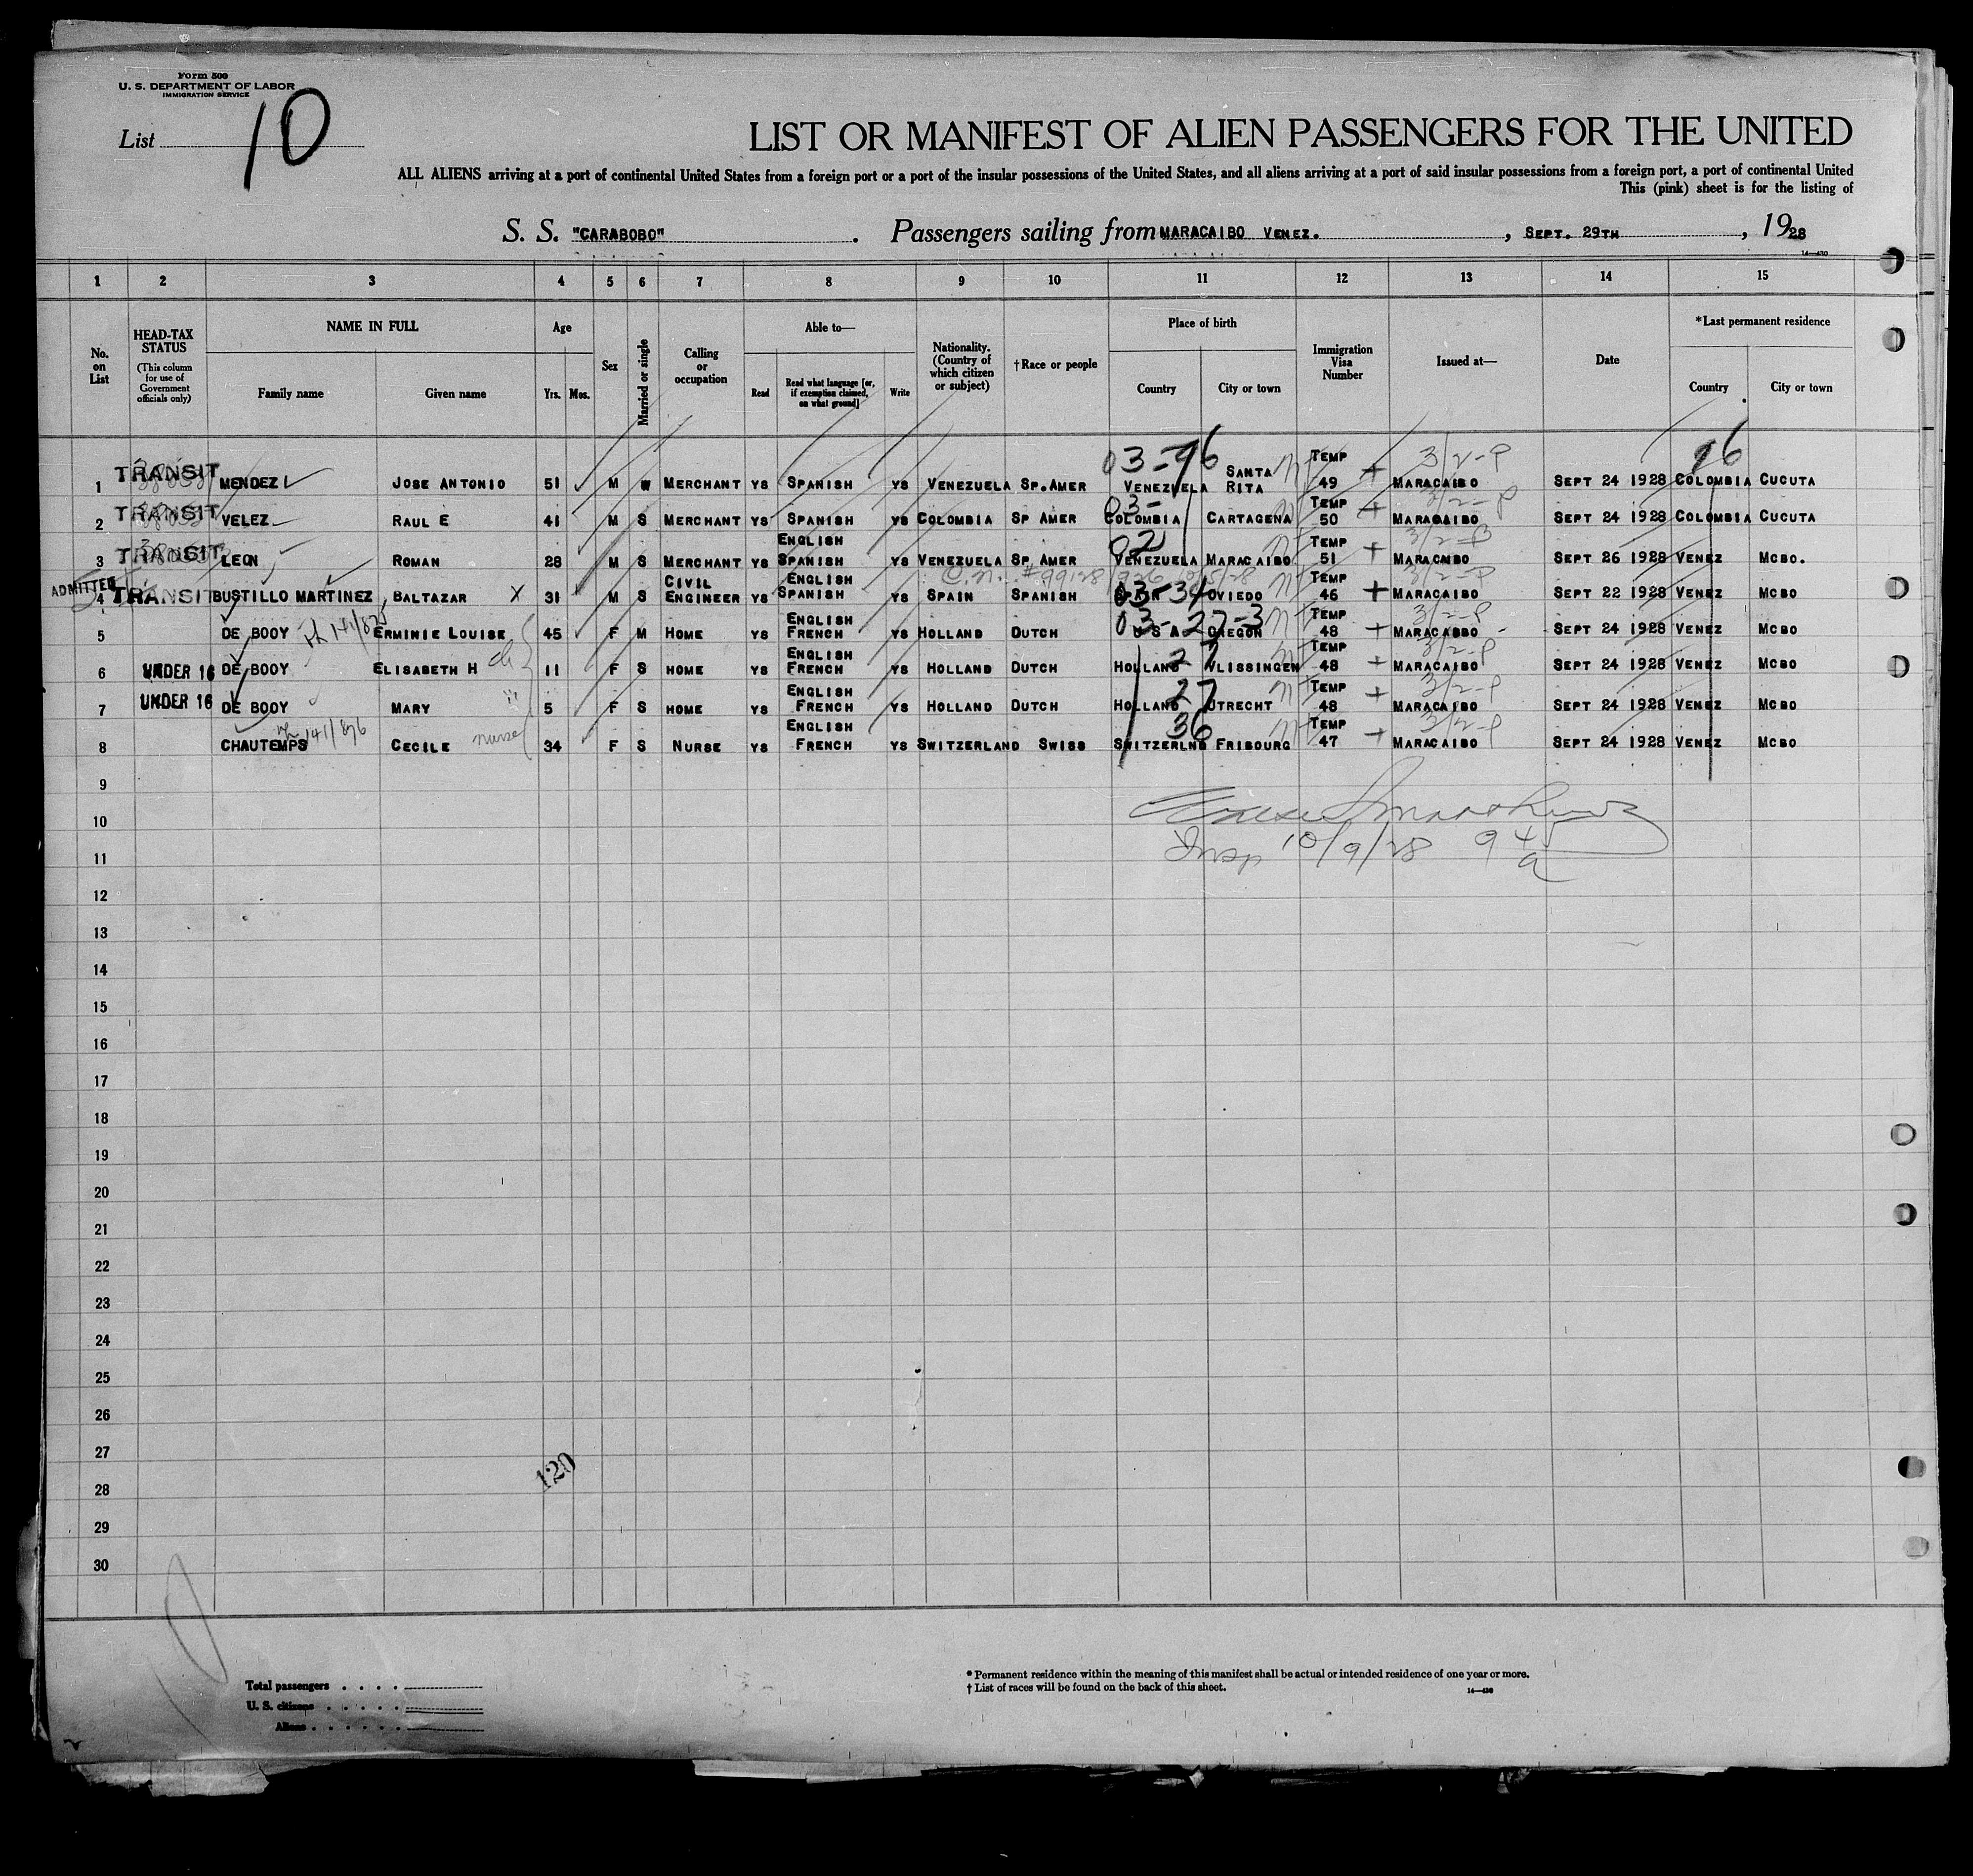 Form 500
U. S. DEPARTMENT OF LABOR
IMMIGRATION SERVICE
List 10
LIST OR MANIFEST OF ALIEN PASSENGERS FOR THE UNITED
ALL ALIENS arriving at a port of continental United States from a foreign port or a port of the insular possessions of the United States, and all aliens arriving at a port of said insular possessions from a foreign port, a port of continental United
This (pink) sheet is for the listing of
S. S. "CARABOBO" . Passengers sailing from MARACAIBO VENEZ. , SEPT. 29TH , 1928
14—430
1 2 3 4 5 6 7 8 9 10 11 12 13 14 15
No. on List
HEAD-TAX STATUS
(This column for use of Government officials only)
NAME IN FULL
Family name
Given name
Age
Yrs. Mos.
Sex
Married or single
Calling or occupation
Able to—
Read
Read what language [or, if exemption claimed, on what ground]
Write
Nationality. (Country of which citizen or subject)
†Race or people
Place of birth
Country
City or town
Immigration Visa Number
Issued at—
Date
*Last permanent residence
Country
City or town
03-96 96
1 TRANSIT MENDEZ JOSE ANTONIO 51 M W MERCHANT YS SPANISH YS VENEZUELA SP.AMER VENEZUELA SANTA RITA TEMP 49 MARACAIBO 3/2-P SEPT 24 1928 COLOMBIA CUCUTA
03-
2 TRANSIT VELEZ RAUL E 41 M S MERCHANT YS SPANISH YS COLOMBIA SP AMER COLOMBIA CARTAGENA TEMP 50 MARACAIBO 3/2-P SEPT 24 1928 COLOMBIA CUCUTA
02
3 TRANSIT LEON ROMAN 28 M S MERCHANT YS ENGLISH SPANISH YS VENEZUELA SP AMER VENEZUELA MARACAIBO TEMP 51 MARACAIBO 3/2-P SEPT 26 1928 VENEZ MCBO.
ADMITTED
4 TRANSIT BUSTILLO MARTINEZ BALTAZAR X 31 M S CIVIL ENGINEER YS ENGLISH SPANISH YS SPAIN SPANISH 03-34 OVIEDO TEMP 46 MARACAIBO 3/2-P SEPT 22 1928 VENEZ MCBO
03-27-3
5 DE BOOY ERMINIE LOUISE 45 F M HOME YS ENGLISH FRENCH YS HOLLAND DUTCH U S A OREGON TEMP 48 MARACABBO 3/2-P SEPT 24 1928 VENEZ MCBO
6 UNDER 16 DE BOOY ELISABETH H ch 11 F S HOME YS ENGLISH FRENCH YS HOLLAND DUTCH HOLLAND 27 VLISSINGEN TEMP 48 MARACAIBO 3/2-P SEPT 24 1928 VENEZ MCBO
7 UNDER 16 DE BOOY MARY " 5 F S HOME YS ENGLISH FRENCH YS HOLLAND DUTCH HOLLAND 27 UTRECHT TEMP 48 MARACAIBO 3/2-P SEPT 24 1928 VENEZ MCBO
141/876 36
8 CHAUTEMPS CECILE nurse 34 F S NURSE YS ENGLISH FRENCH YS SWITZERLAND SWISS SWITZERLND FRIBOURG TEMP 47 MARACAIBO 3/2-P SEPT 24 1928 VENEZ MCBO
9
10
Insp 10/9/28 9
11
12
13
14
15
16
17
18
19
20
21
22
23
24
25
26
27
120
28
29
30
Total passengers . . . .
U. S. citizens . . . . .
Aliens . . . . . .
* Permanent residence within the meaning of this manifest shall be actual or intended residence of one year or more.
† List of races will be found on the back of this sheet.
14—430